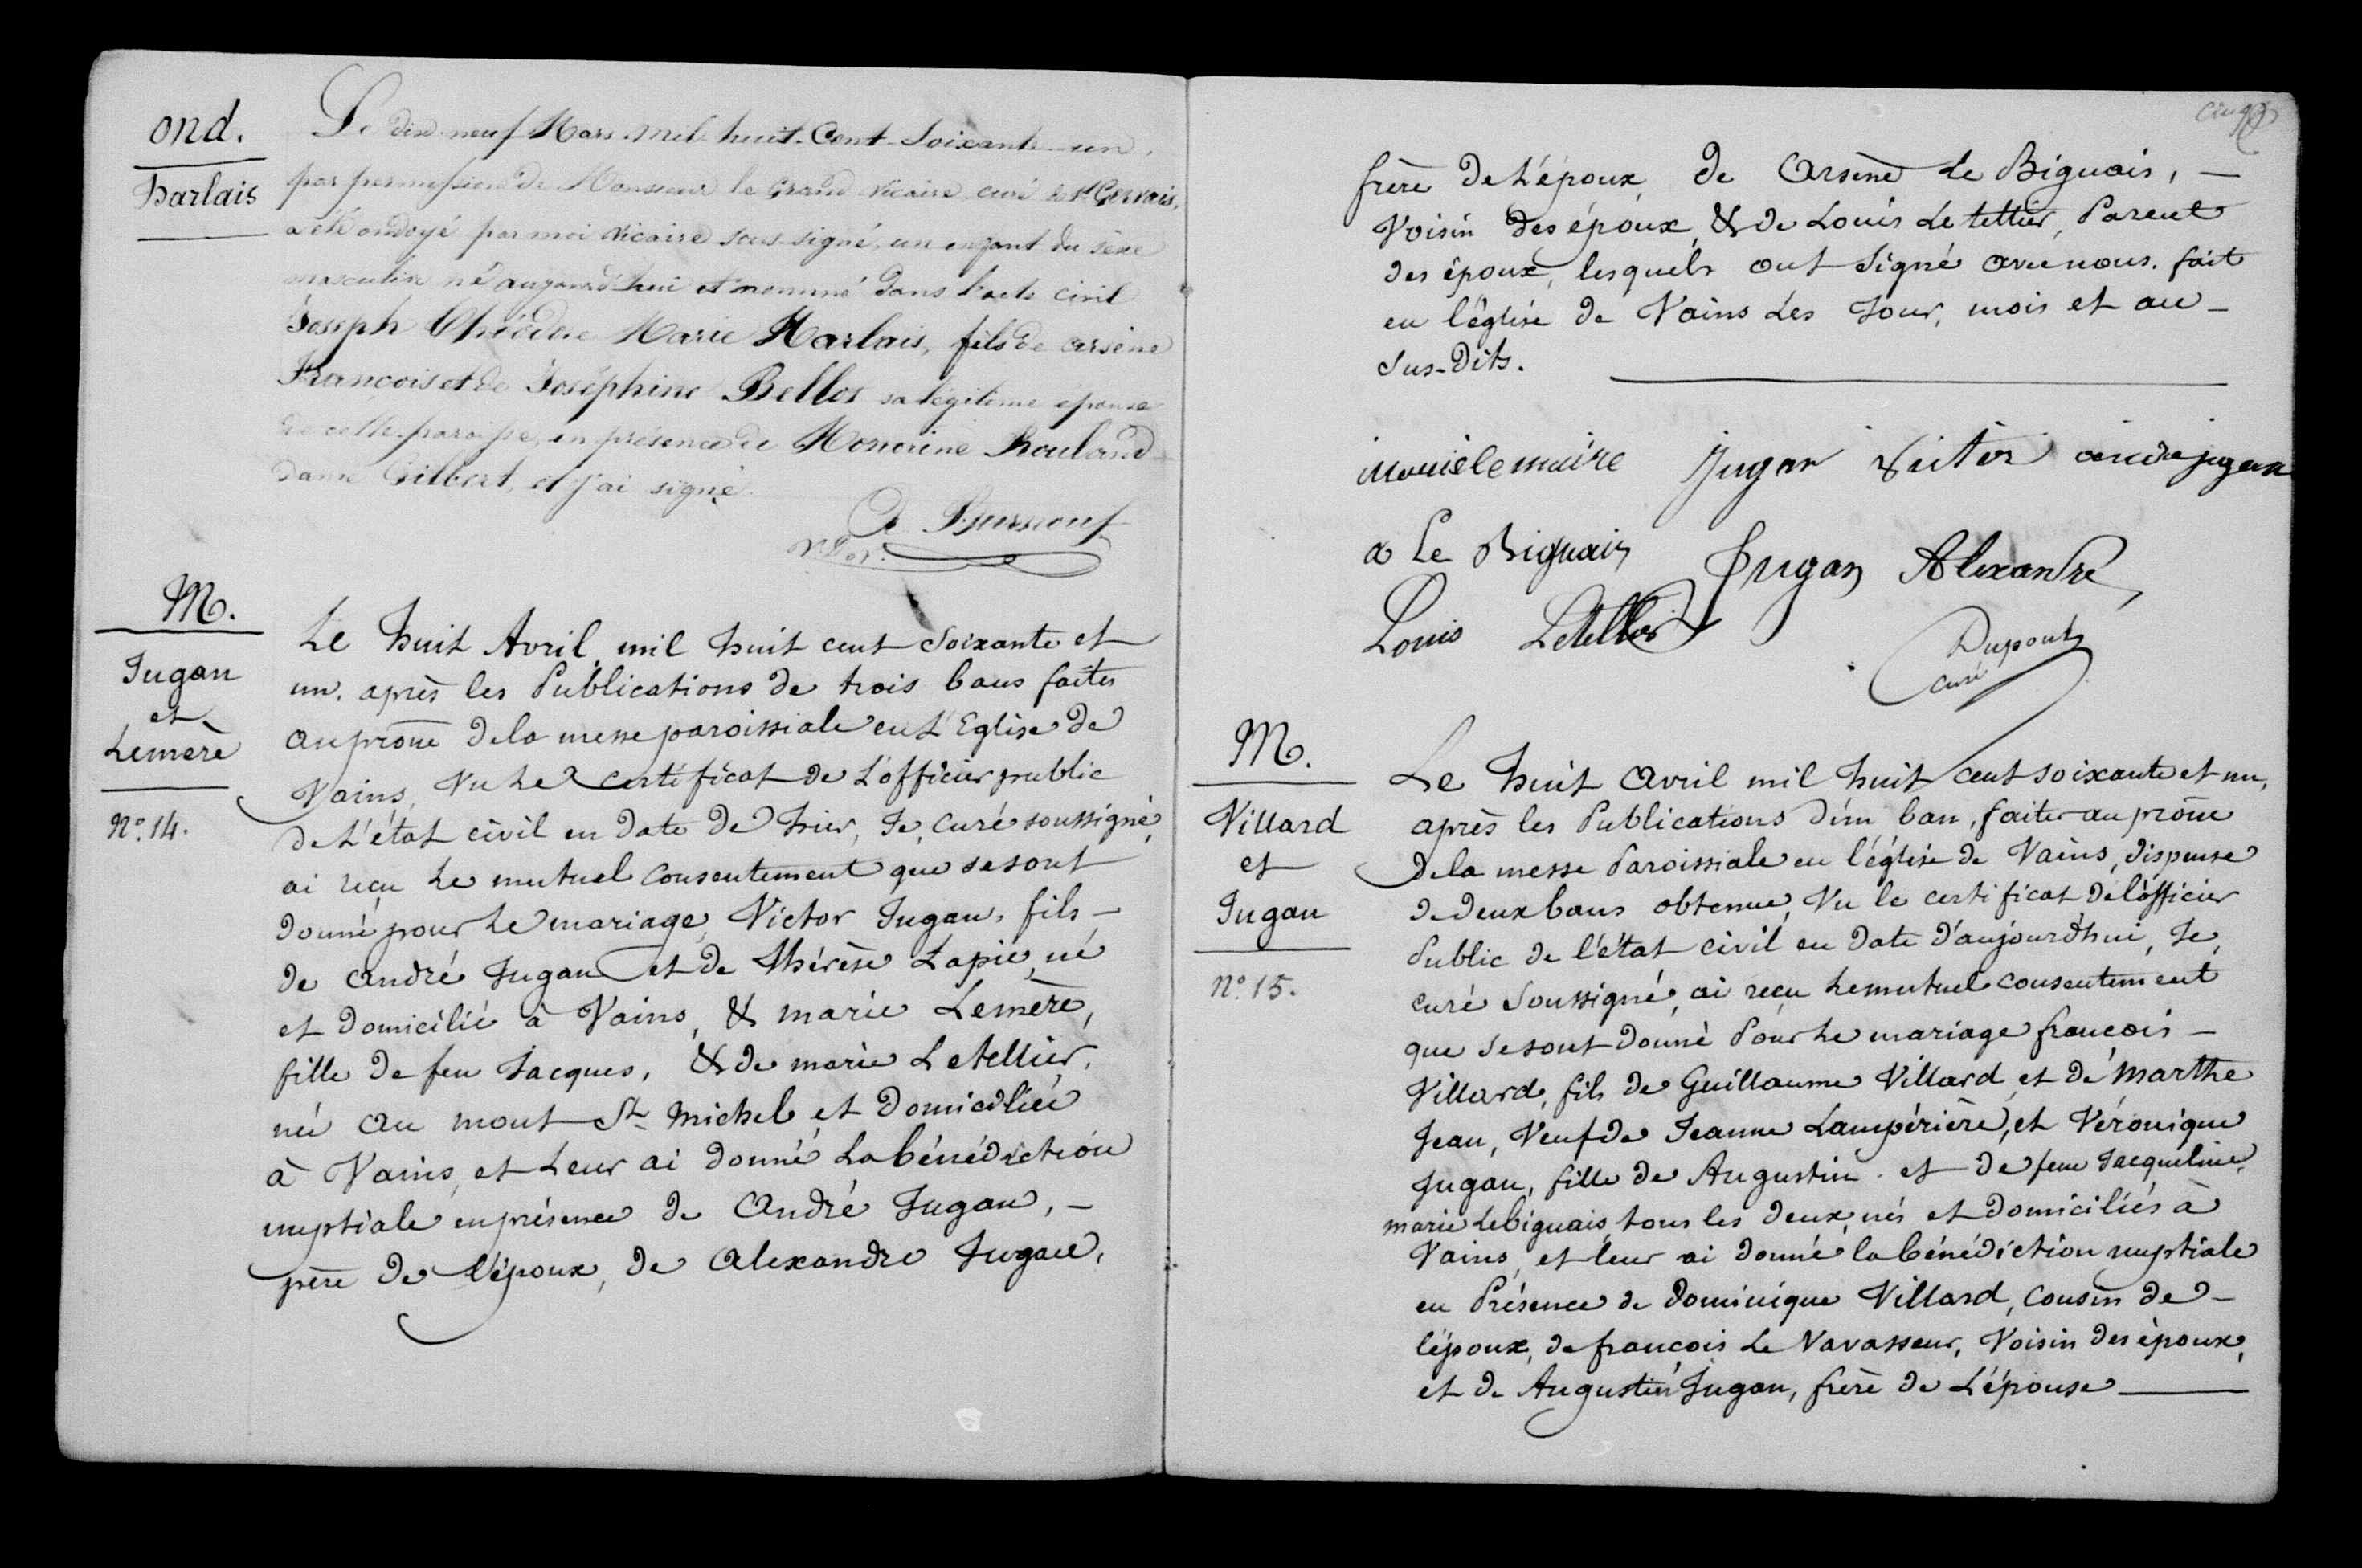 ond.
Harlais
Le dix-neuf Mars mil huit-Cent-Soixante-un,
par permission de Monsieur le Grand Vicaire, curé de St Gervais,
a été ondoyé par moi Vicaire sous signé, un enfant du sexe
masculin né aujourd'hui et nommé dans l'acte civil
Joseph Marie Harlais, fils de arsène
François et de Joséphine Bellos sa légitime épouse
de cette paroisse, en présence de Honorine Rouland
dame Gilbert, et j'ai signé.
M.
Jugan
et
Lemère
No. 14.
Le huit Avril, mil huit cent Soixante et
un. après les Publications de trois bans faites
au prône de la messe paroissiale en L'Eglise de
Vains, Vu Le certificat de L'officier public
de L'état civil en Date de hier, Je, curé soussigné,
ai reçu Le mutuel consentement que se sont
donné pour Le mariage, Victor Jugan, fils –
de André Jugan et de Thérèse Lapie, né
et domicilié à Vains, & marie Lemère,
fille de feu Jacques, & de marie Letellier,
née au mont St michel et domiciliée
à Vains, et Leur ai donné La bénédiction
nuptiale en présence de André Jugan, –
père de L'époux, de Alexandre Jugan,
frère de L'époux, de Arsène Le Biguais, –
Voisin des époux, & de Louis Letellier, Parent
des époux, lesquels ont signé avec nous. fait
en l'église de Vains Les Jour, mois et an –
sus-dits.
marie lemaire Jugan Victor andre jugan
a Le Biguais Jugan Alexandre
Louis Letellier
Dupont
curé
M.
Villard
et
Jugan
No. 15.
Le huit avril mil huit cent soixante et un,
après les Publications d'un ban, faites au prône
de la messe Paroissiale en l'église de Vains, dispense
de deux bans obtenue, Vu le certificat de l'officier
Public de l'état civil en Date d'aujourd'hui, Je,
curé Soussigné, ai reçu Le mutuel consentement
que se sont donné Pour Le mariage françois –
Villard, fils de Guillaume Villard et de Marthe
Jean, Veuf de Jeanne Lampérière, et Véronique
Jugan, fille de Augustin et de feue Jacqueline
marie Lebiguais, tous les deux, nés et domiciliés à
Vains, et leur ai donné la bénédiction nuptiale
en Présence de Dominique Villard, cousin de –
l'époux, de françois Le Vavasseur, Voisin des époux,
et de Augustin Jugan, frère de L'épouse